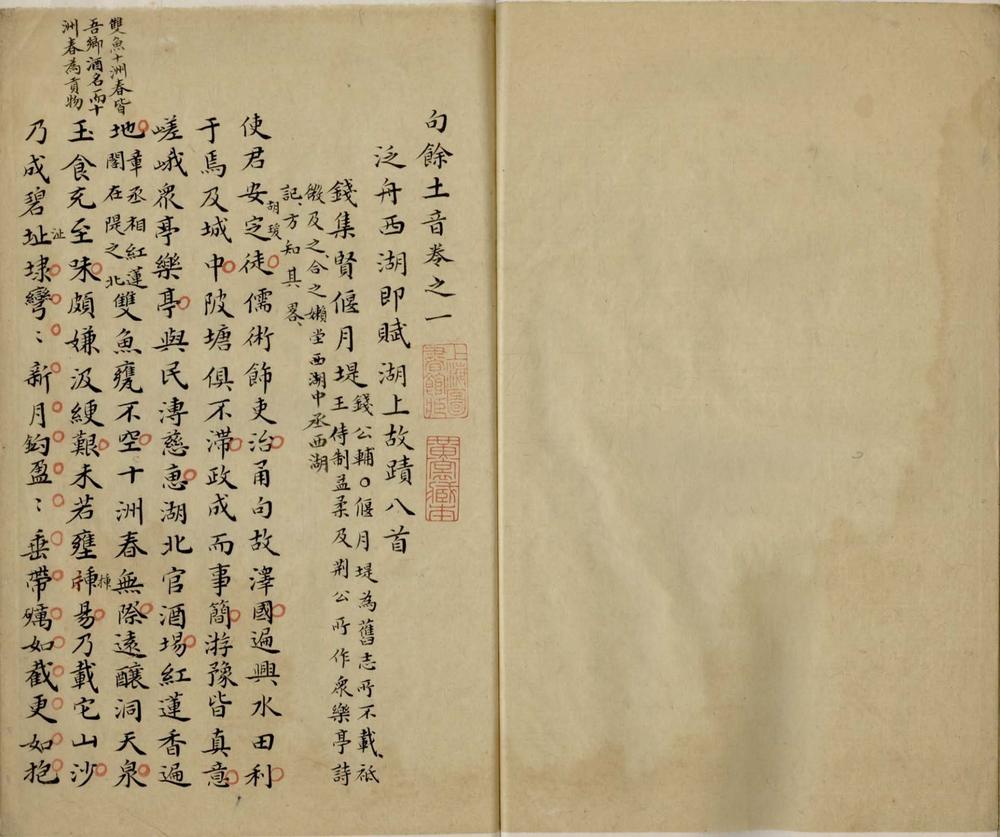 句餘土音卷之一
泛舟西湖即賦湖上故蹟八首
錢集賢偃月堤
錢公輔○偃月堤為舊志所不載、祇
王侍制孟柔及荆公所作衆樂亭詩
緞及之、合之嬾堂西湖中丞西湖
記、方知其畧、
使君安定徒儒術飾吏治甬句故澤國遍興水田利
胡瑗
于焉及城中陂塘俱不滯政成而事簡游豫皆真意
嵯峨衆亭樂亭與民溥慈惠湖北官酒場紅蓮香遍
地
章丞相紅蓮
閣在隄之北
雙魚甕不空十洲春無際遠釀洞天泉
玉食充至味頗嫌汲綆艱未若壅種易乃載它山沙
揰
乃成碧址埭彎〻新月鈎盈〻垂帶礪如截更如抱
沚
雙魚十洲春皆
吾鄉酒名而十
洲春為貢物
上海圖書館藏